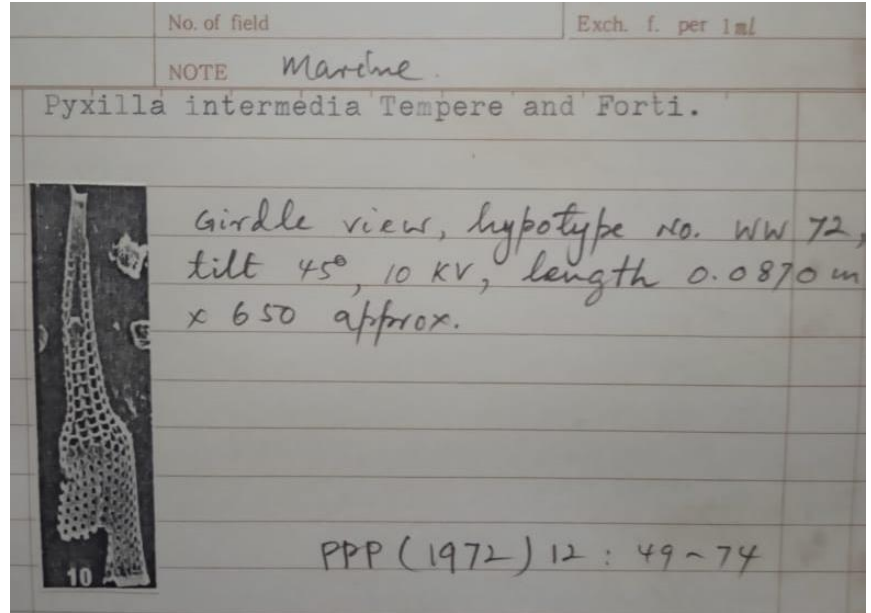 No. of field
Exch. f. per 1ml
NOTE Marine.
Pyxilla intermedia Tempere and Forti.
Girdle view, hypotype No. WW 72,
tilt 45°, 10 KV, length 0.0870 m
x 650 approx.
10
PPP (1972) 12 : 49~74